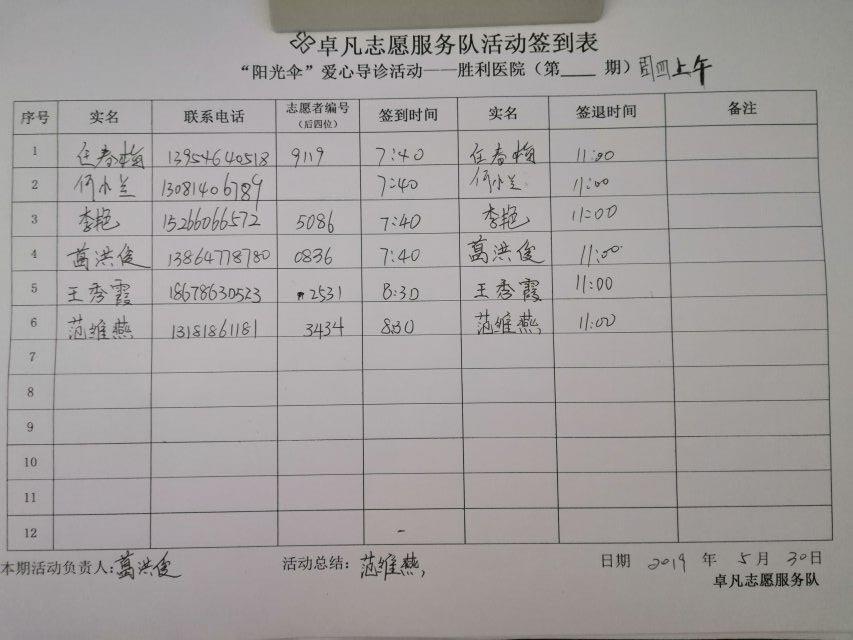 卓凡志愿服务队活动签到表
“阳光伞”爱心导诊活动——胜利医院（第____ 期）周四上午
序号 实名 联系电话 志愿者编号（后四位） 签到时间 实名 签退时间 备注
1 任春梅 13954640518 9119 7:40 任春梅 11:00
2 何小兰 13081406789 7:40 何小兰 11:00
3 李艳 15266066572 5086 7:40 李艳 11:00
4 葛洪俊 13864778780 0836 7:40 葛洪俊 11:00
5 王秀霞 18678630523 2531 8:30 王秀霞 11:00
6 范维燕 13181861181 3434 8:30 范维燕 11:00
7
8
9
10
11
12
本期活动负责人:葛洪俊 活动总结: 范维燕 日期 2019 年 5 月 30 日
卓凡志愿服务队